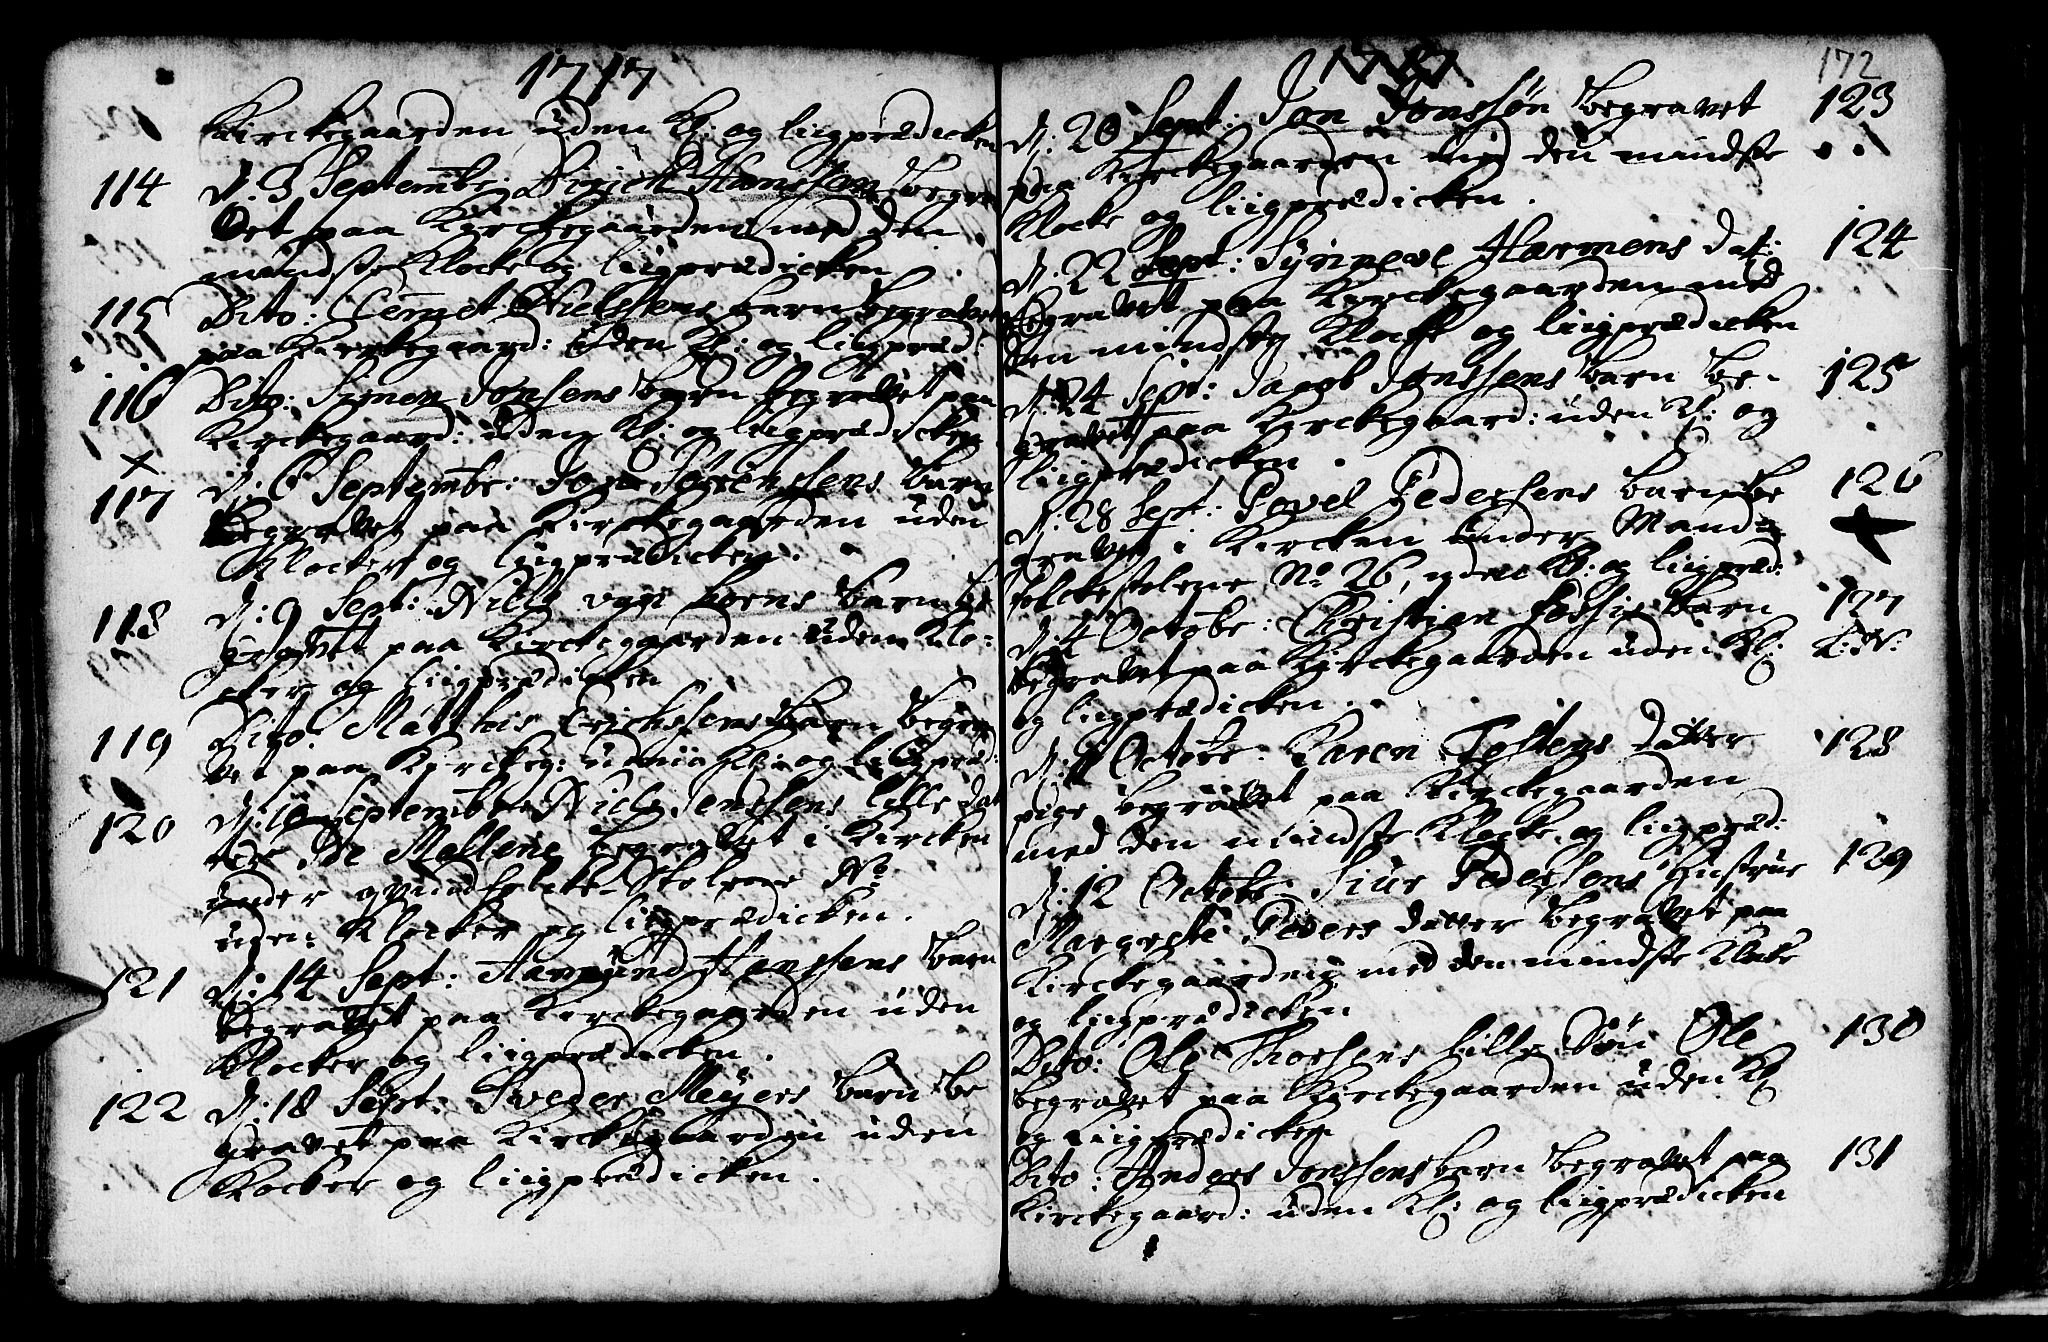 1717
Kirckegaarden uden Kl: og liigprædicken
114 D. 3 Septembr: Dirich Hanssøn begra-
vet paa Kirckegaarden med den
mindste Klocke og liigprædicken
115 Dito: Nielssens barn begravet
paa Kirckegaard: uden Kl: og liigpræd:
116 Dito: Simen Jonsens barn begravet paa
Kirckegaard: uden Kl: og liigprædicken
117 D. 6 Septembr: Sörenssens barn
begravet paa Kirckegaarden uden
Klocker og liigprædicken.
118 D: 9 Sept: Nills von barn be
gravet paa Kirckegaarden uden Klo-
cker og liigprædicken
119 Dito: Matthis Erichssens barn begra-
vet paa Kirckeg: uden Kl: og liigpræd:
120 D: 10 Septembr: Niels Jenssens lille dat
ter Mallene begravet i Kircken
under qvindfolcke Stolene No
uden Klocker og liigprædicken.
121 D: 14 Sept: Aamund Hanssens barn
begravet paa Kirckegaarden uden
Klocker og liigprædicken.
122 D: 18 Sept: Sveder Meÿers barn be
gravet paa Kirckegaarden uden
Klocker og liigprædicken.
1717
172
D: 20 Sept: Jon Jonssøn begravet 123
paa Kirckegaarden med den mindste
Klocke og liigprædicken.
D: 22 Sept: Sÿnneve Harmens dat: 124
begravet paa Kirckegaarden med
den mindste Klocke og liigprædicken
D: 24 Sept: Jacob Jonssens barn be- 125
gravet paa Kirckegaard: uden Kl: og
liigprædicken.
D: 28 Sept: Povel Pedersens barn be 126
gravet i Kircken under Mand-
folckestolene No 26, uden Kl: og liigpræd:
D: 4 Octobr: Christian barn 127
begravet paa Kirckegaarden uden Kl:
og liigprædicken.
D: Octobr: Karen datter 128
pige begravet paa Kirckegaarden
med den mindste Klocke og liigpræd:
D: 12 Octobr: Siur Pedersens hustrue 129
Margrete Peders datter begravet paa
Kirckegaarden med den mindste Klocke
og liigprædicken
Dito: Ole Thorsens lille Søn Ole 130
begravet paa Kirckegaarden uden Kl
og liigprædicken
Dito: Anders Jonssens barn begravet paa 131
Kirckegaard: uden Kl: og liigprædicken